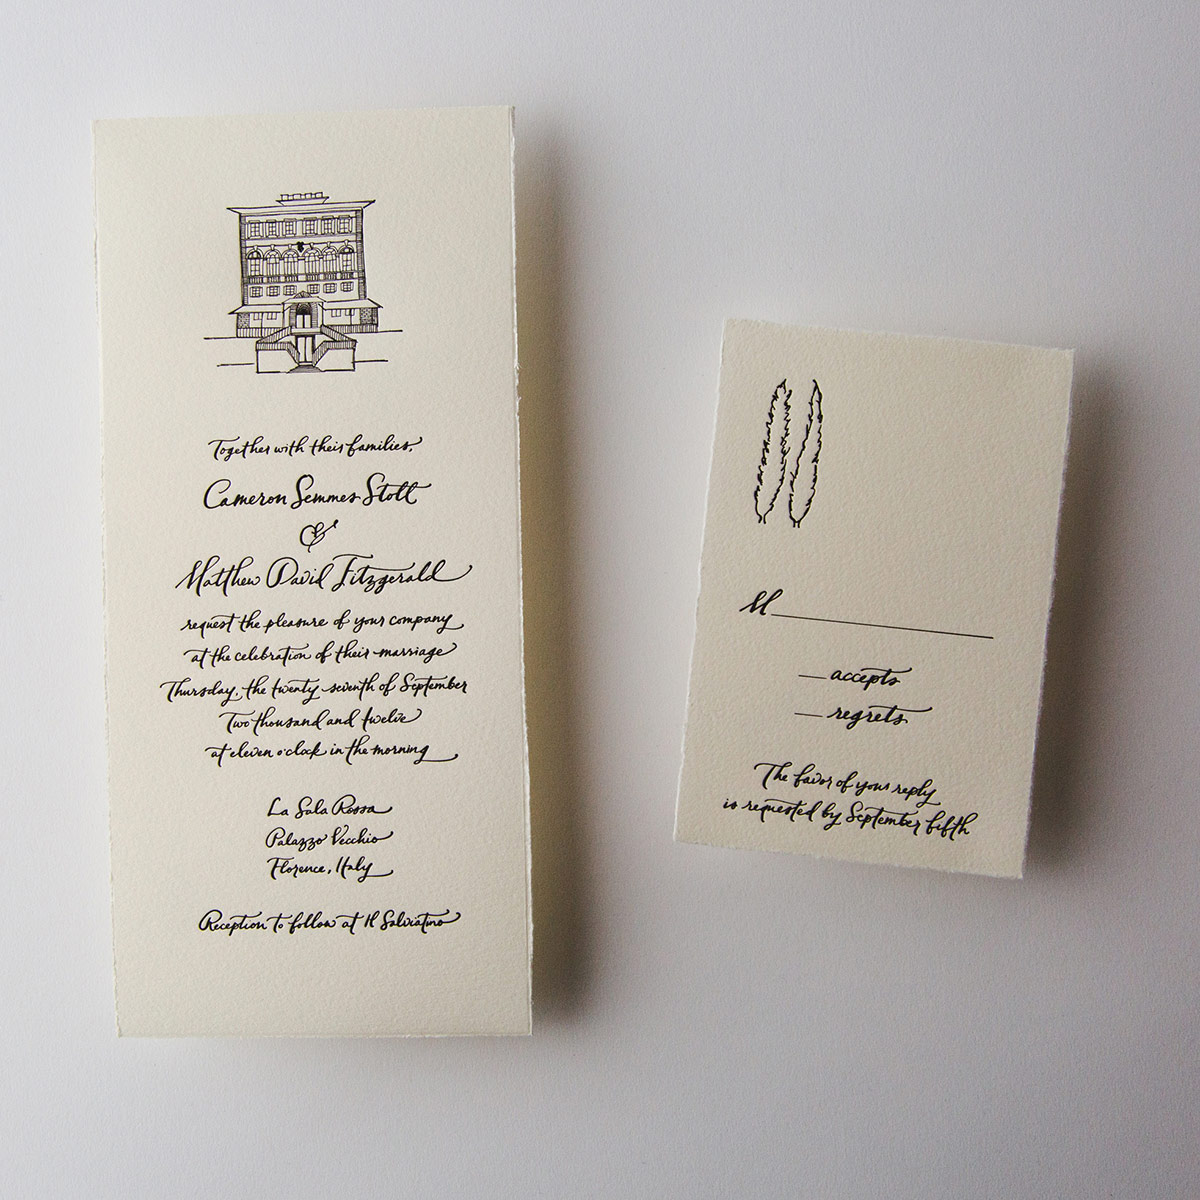 Together with their families,
Cameron Semmes Stott
&
Matthew David Fitzgerald
request the pleasure of your company
at the celebration of their marriage
Thursday, the twenty-seventh of September
Two thousand and twelve
at eleven o'clock in the morning
La Sala Rossa
Palazzo Vecchio
Florence, Italy
Reception to follow at Il Salviatino
M
accepts
regrets
The favor of your reply
is requested by September fifth